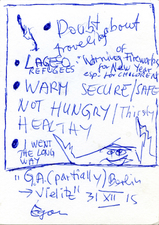 Doubt about
traveling
of
LAGESO
REFUGEES
Warning Fireworks
for New Year
esp. for CHILDREN
WARM SECURE/SAFE
NOT HUNGRY/Thirsty/
HEALTHY
I WENT
THE LONG
WAY
(partially) Berlin
→ Vielitz" 31 XII 15